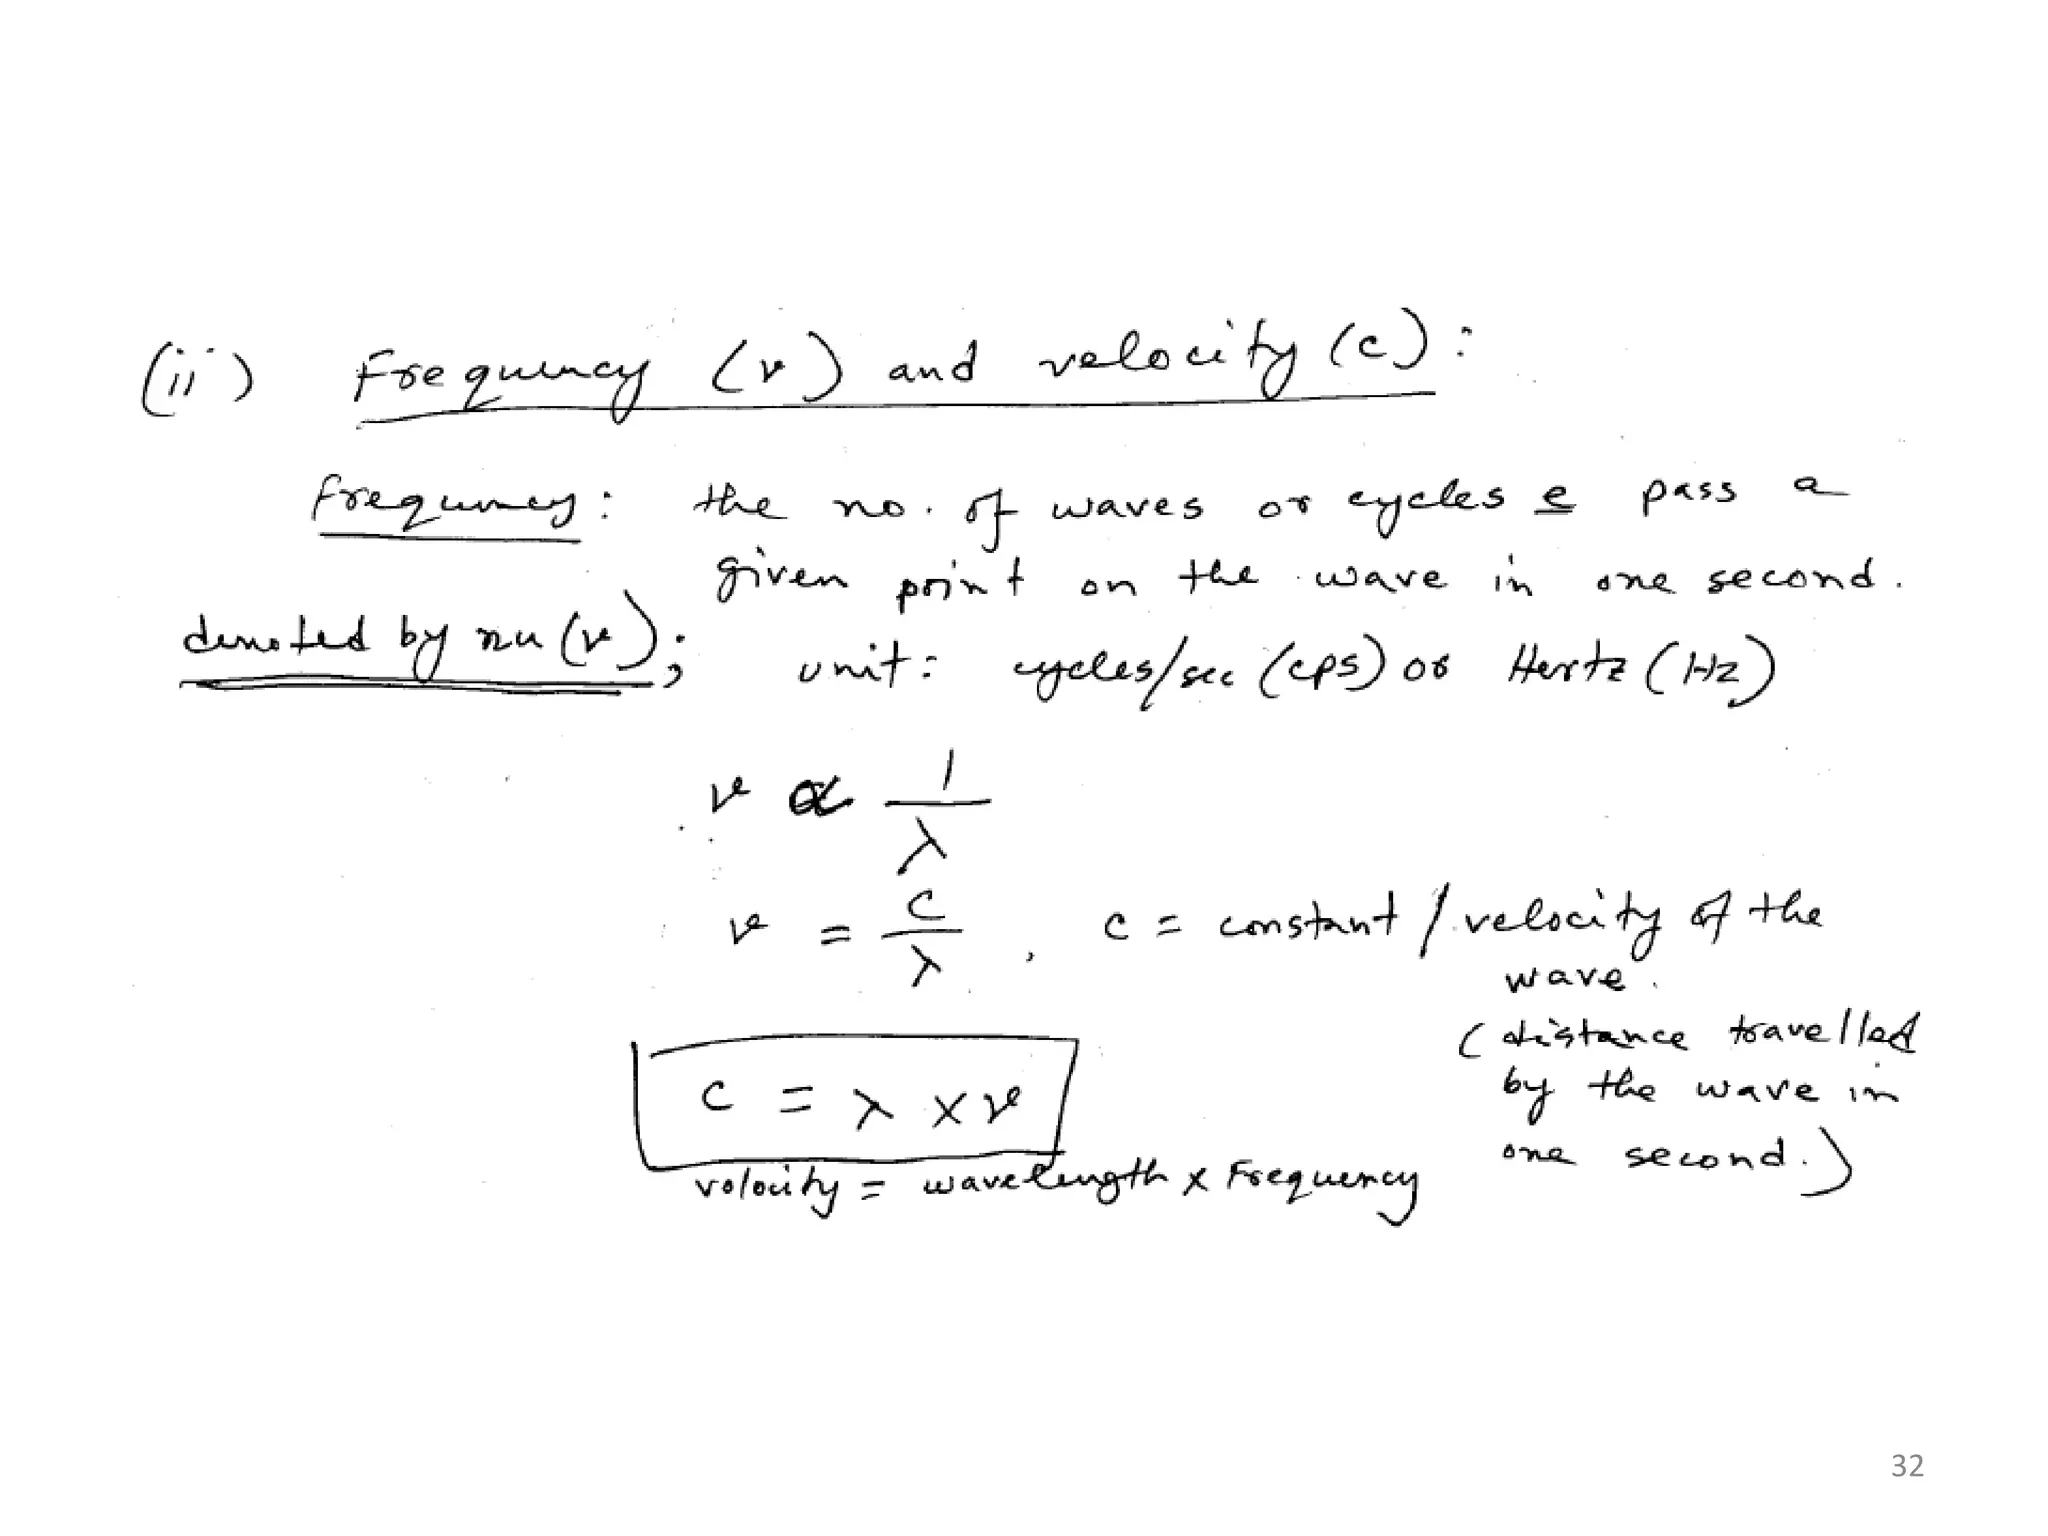 (ii) Frequency (ν) and velocity (c):
Frequency: the no. of waves or cycles c pass a
given point on the wave in one second.
denoted by nu (ν);
unit: cycles/sec (cps) or Hertz (Hz)
ν ∝ 1/λ
ν = c/λ , c = constant / velocity of the
wave.
(distance travelled
by the wave in
one second.)
c = λ × ν
velocity = wavelength × Frequency
32